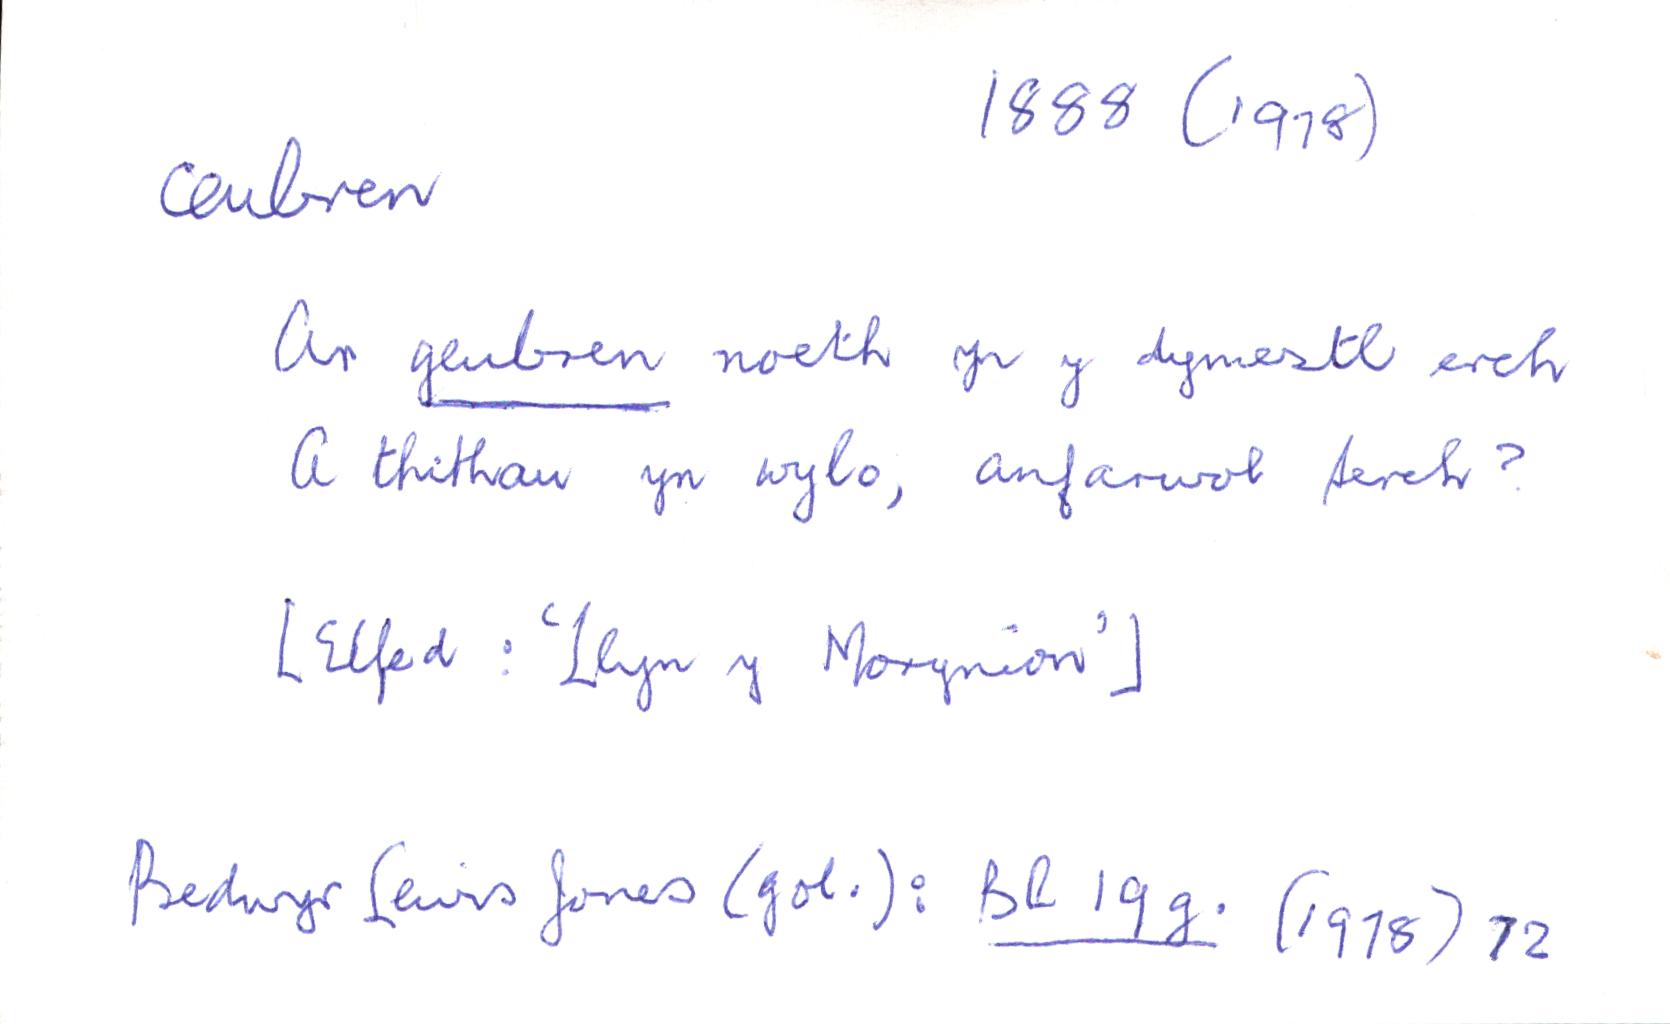 1888 (1978)
ceubren
Ar geubren noeth yn y dymestl erch
A thithau yn wylo, anfarwol serch?
[Elfed : 'Llyn y Morynion']
Bedwyr Lewis Jones (gol.): Bl 19g. (1978) 72